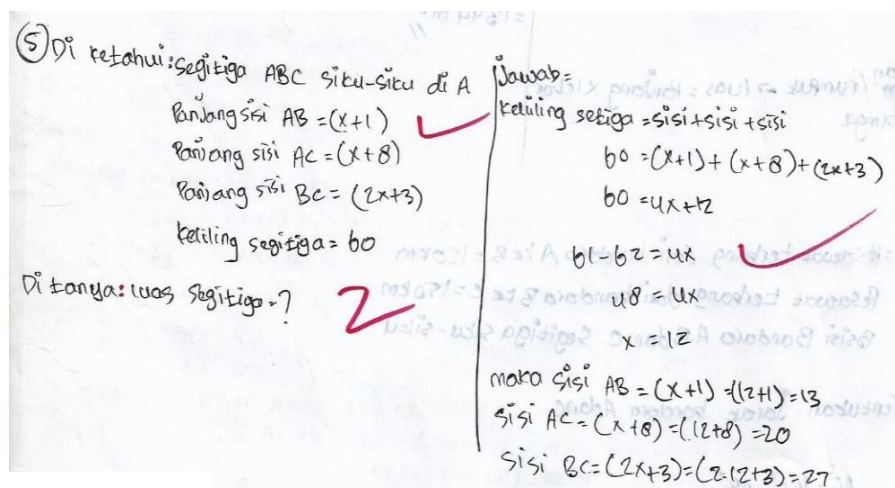 5 Di ketahui: Segitiga ABC siku-siku di A
Panjang sisi AB = (x+1)
Panjang sisi AC = (x+8)
Panjang sisi BC = (2x+3)
Keliling segitiga = 60
Di tanya: Luas Segitiga = ?
2
Jawab =
Keliling segitiga = sisi + sisi + sisi
60 = (x+1) + (x+8) + (2x+3)
60 = 4x+12
48 = 4x
x = 12
maka sisi AB = (x+1) = (12+1) = 13
Sisi AC = (x+8) = (12+8) = 20
Sisi BC = (2x+3) = (2.12+3) = 27